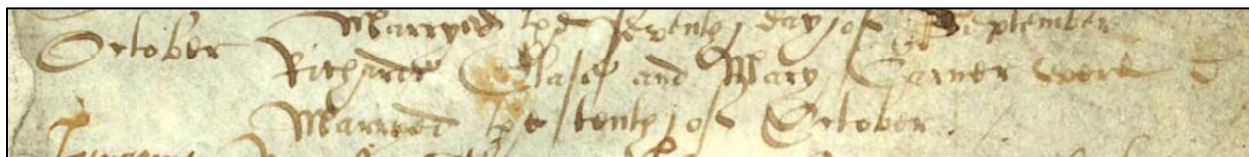 Marryed the seventh day of September
October Richarde Glasse and Mary Garner were
Marryed the tenth of October.